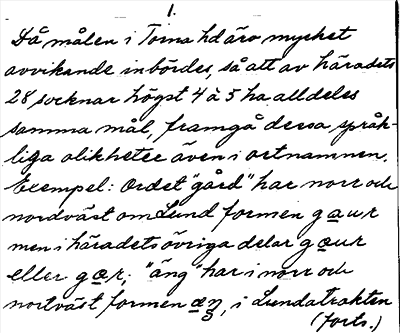 1.
Då målen i Torna hd äro mycket
avvikande inbördes, så att av häradets
28 socknar högst 4 à 5 ha alldeles
samma mål, framgå dessa språk-
liga olikheter även i ortnamnen.
Exempel: Ordet "gård" har norr och
nordväst om Lund formen gaur
men i häradets övriga delar gœur
eller gœr; "äng" har i norr och
nortväst formen æŋ, i Lundatrakten
(forts.)